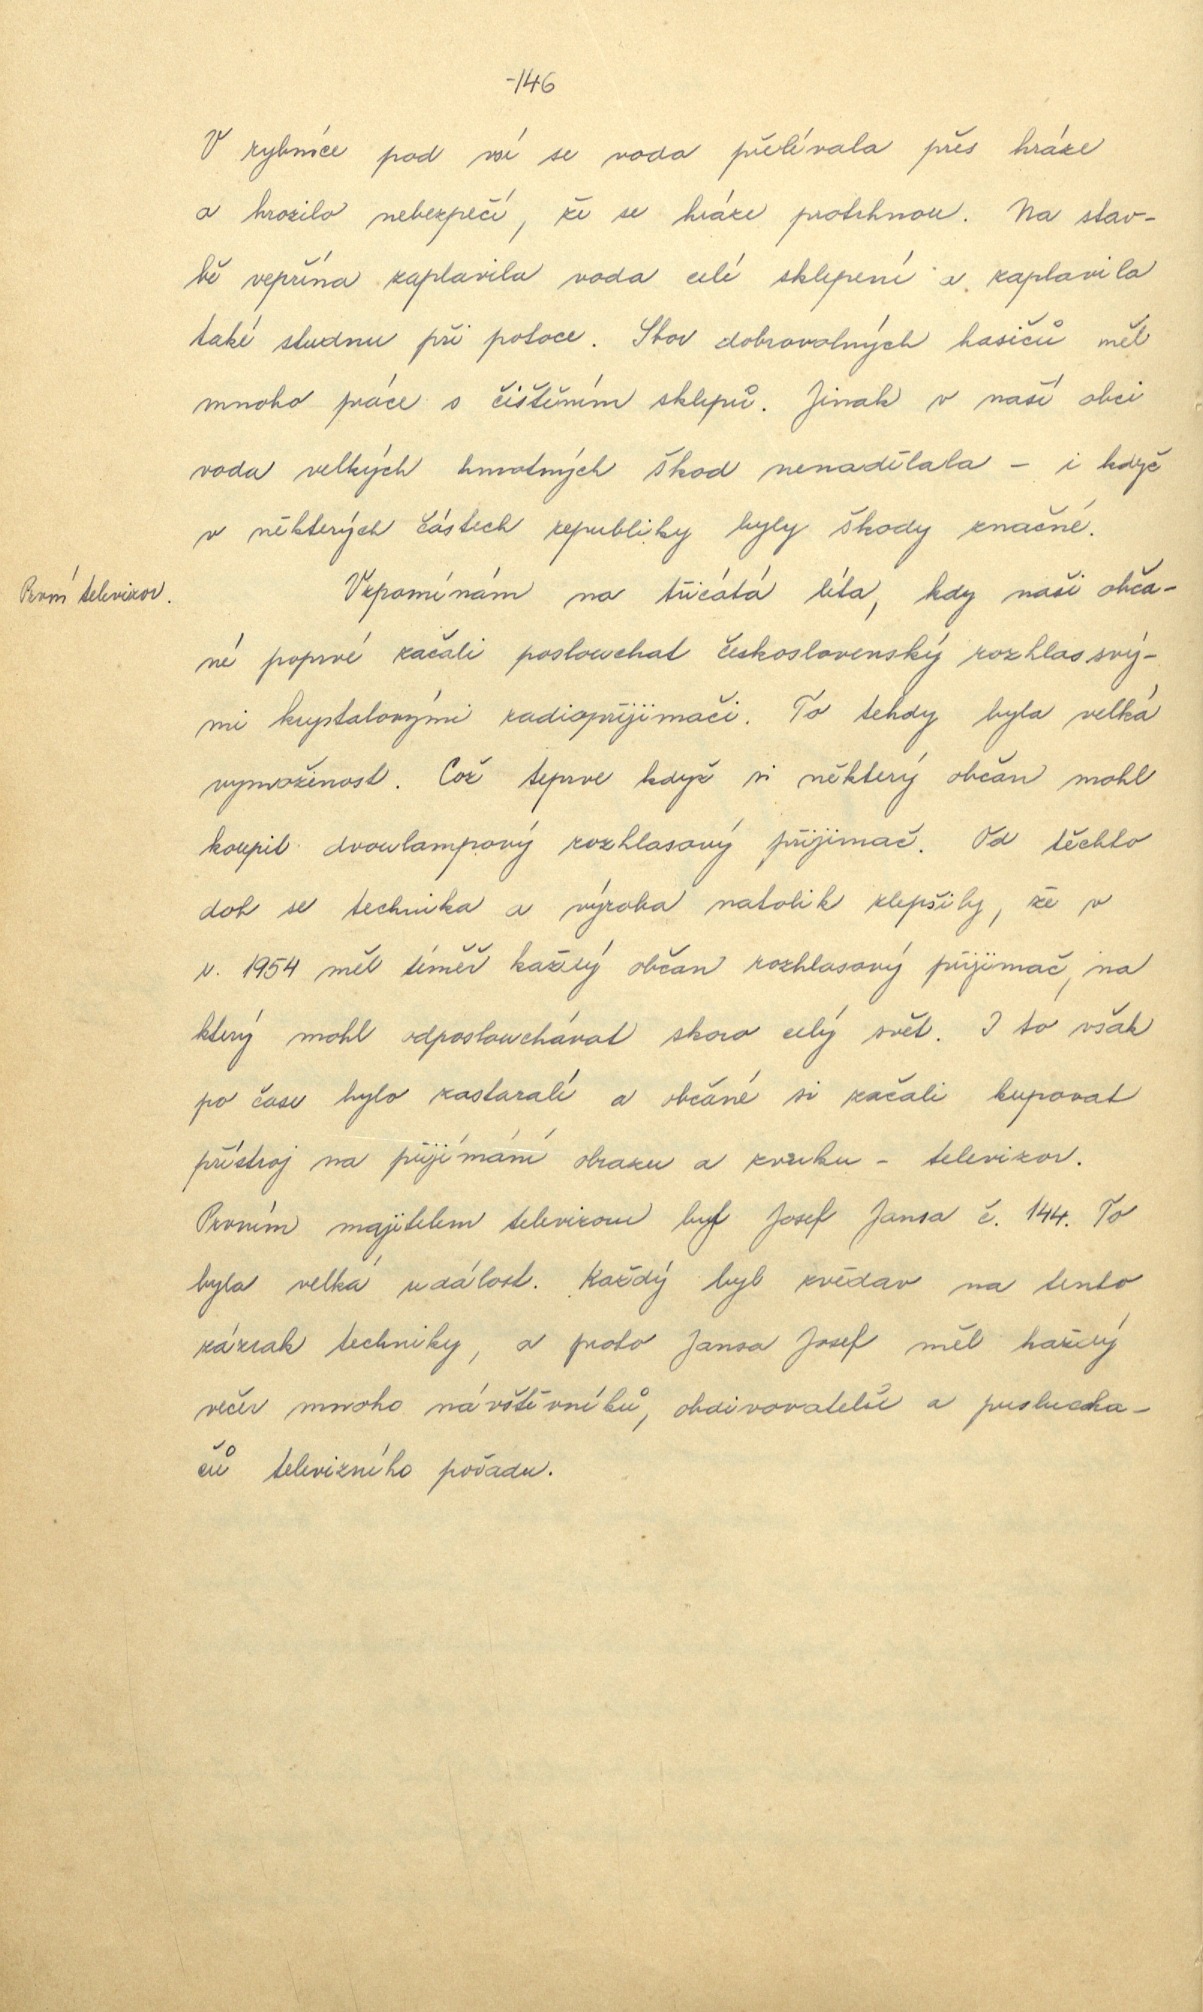 -146
V rybníce pod vsí se voda přelévala přes hráze
a hrozilo nebezpečí, že se hráze protrhnou. Na stav-
bě vepřína zaplavila voda celé sklepení a zaplavila
také studnu při potoce. Sbor dobrovolných hasičů měl
mnoho práce s čištěním sklepů. Jinak v naší obci
voda velkých hmotných škod nenadělala - i když
v některých částech republiky byly škody značné.
První televizor.
Vzpomínám na třicátá léta, kdy naši obča-
né poprvé začali poslouchat československý rozhlas svý-
mi krystalovými radiopřijimači. To tehdy byla velká
vymoženost. Což teprve když si některý občan mohl
koupit dvoulampový rozhlasový přijimač. Od těchto
dob se technika a výroba natolik zlepšily, že v
r. 1954 měl téměř každý občan rozhlasový přijimač, na
který mohl odposlouchávat skoro celý svět. I to však
po čase bylo zastaralé a občané si začali kupovat
přístroj na přijímání obrazu a zvuku - televizor.
Prvním majitelem televizoru byl Josef Jansa č. 144. To
byla velká událost. Každý byl zvědav na tento
zázrak techniky, a proto Jansa Josef měl každý
večer mnoho návštěvníků, obdivovatelů a poslucha-
čů televizního pořadu.